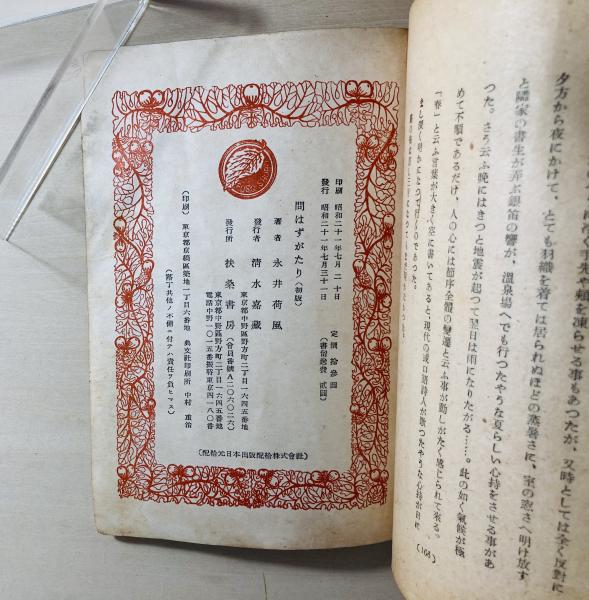 夕方から夜にかけて、とても羽織を着ては居られぬほどの蒸暑さに、室の窓さへ明け放す
と隣家の書生が弄ぶ銀笛の響が、溫泉場へでも行つたやうな夏らしい心持をさせる事があ
つた。さう云ふ晩にはきつと地震が起つて翌日は雨になりたがる……。此の如く氣候が極
めて不順であるだけ、人の心には節序全體の變遷と云ふ事が動しがたく感じられて來る。
「春」と云ふ言葉が大きく空に書いてあると、現代の或口語詩人が歌つたやうな心持が日に
まし深く明かになつて行くのであつた。
(166)
印刷 昭和二十一年七月二十日
發行 昭和二十一年七月三十一日
定價 拾參圓
(書留送費 貳圓)
問はずがたり(初版)
著者 永井荷風
東京都中野區野方町二丁目一六四五番地
發行者 淸水嘉藏
(會員番號A二〇六〇二六)
發行所 扶桑書房
東京都中野區野方町二丁目一六四五番地
電話中野一〇一五番振替東京四一八〇番
(印刷) 東京都京橋區築地一丁目六番地 典文社印刷所 中村重治
(落丁其他ノ不備ニ付テハ責任ヲ負ヒマス)
(配給元日本出版配給株式會社)